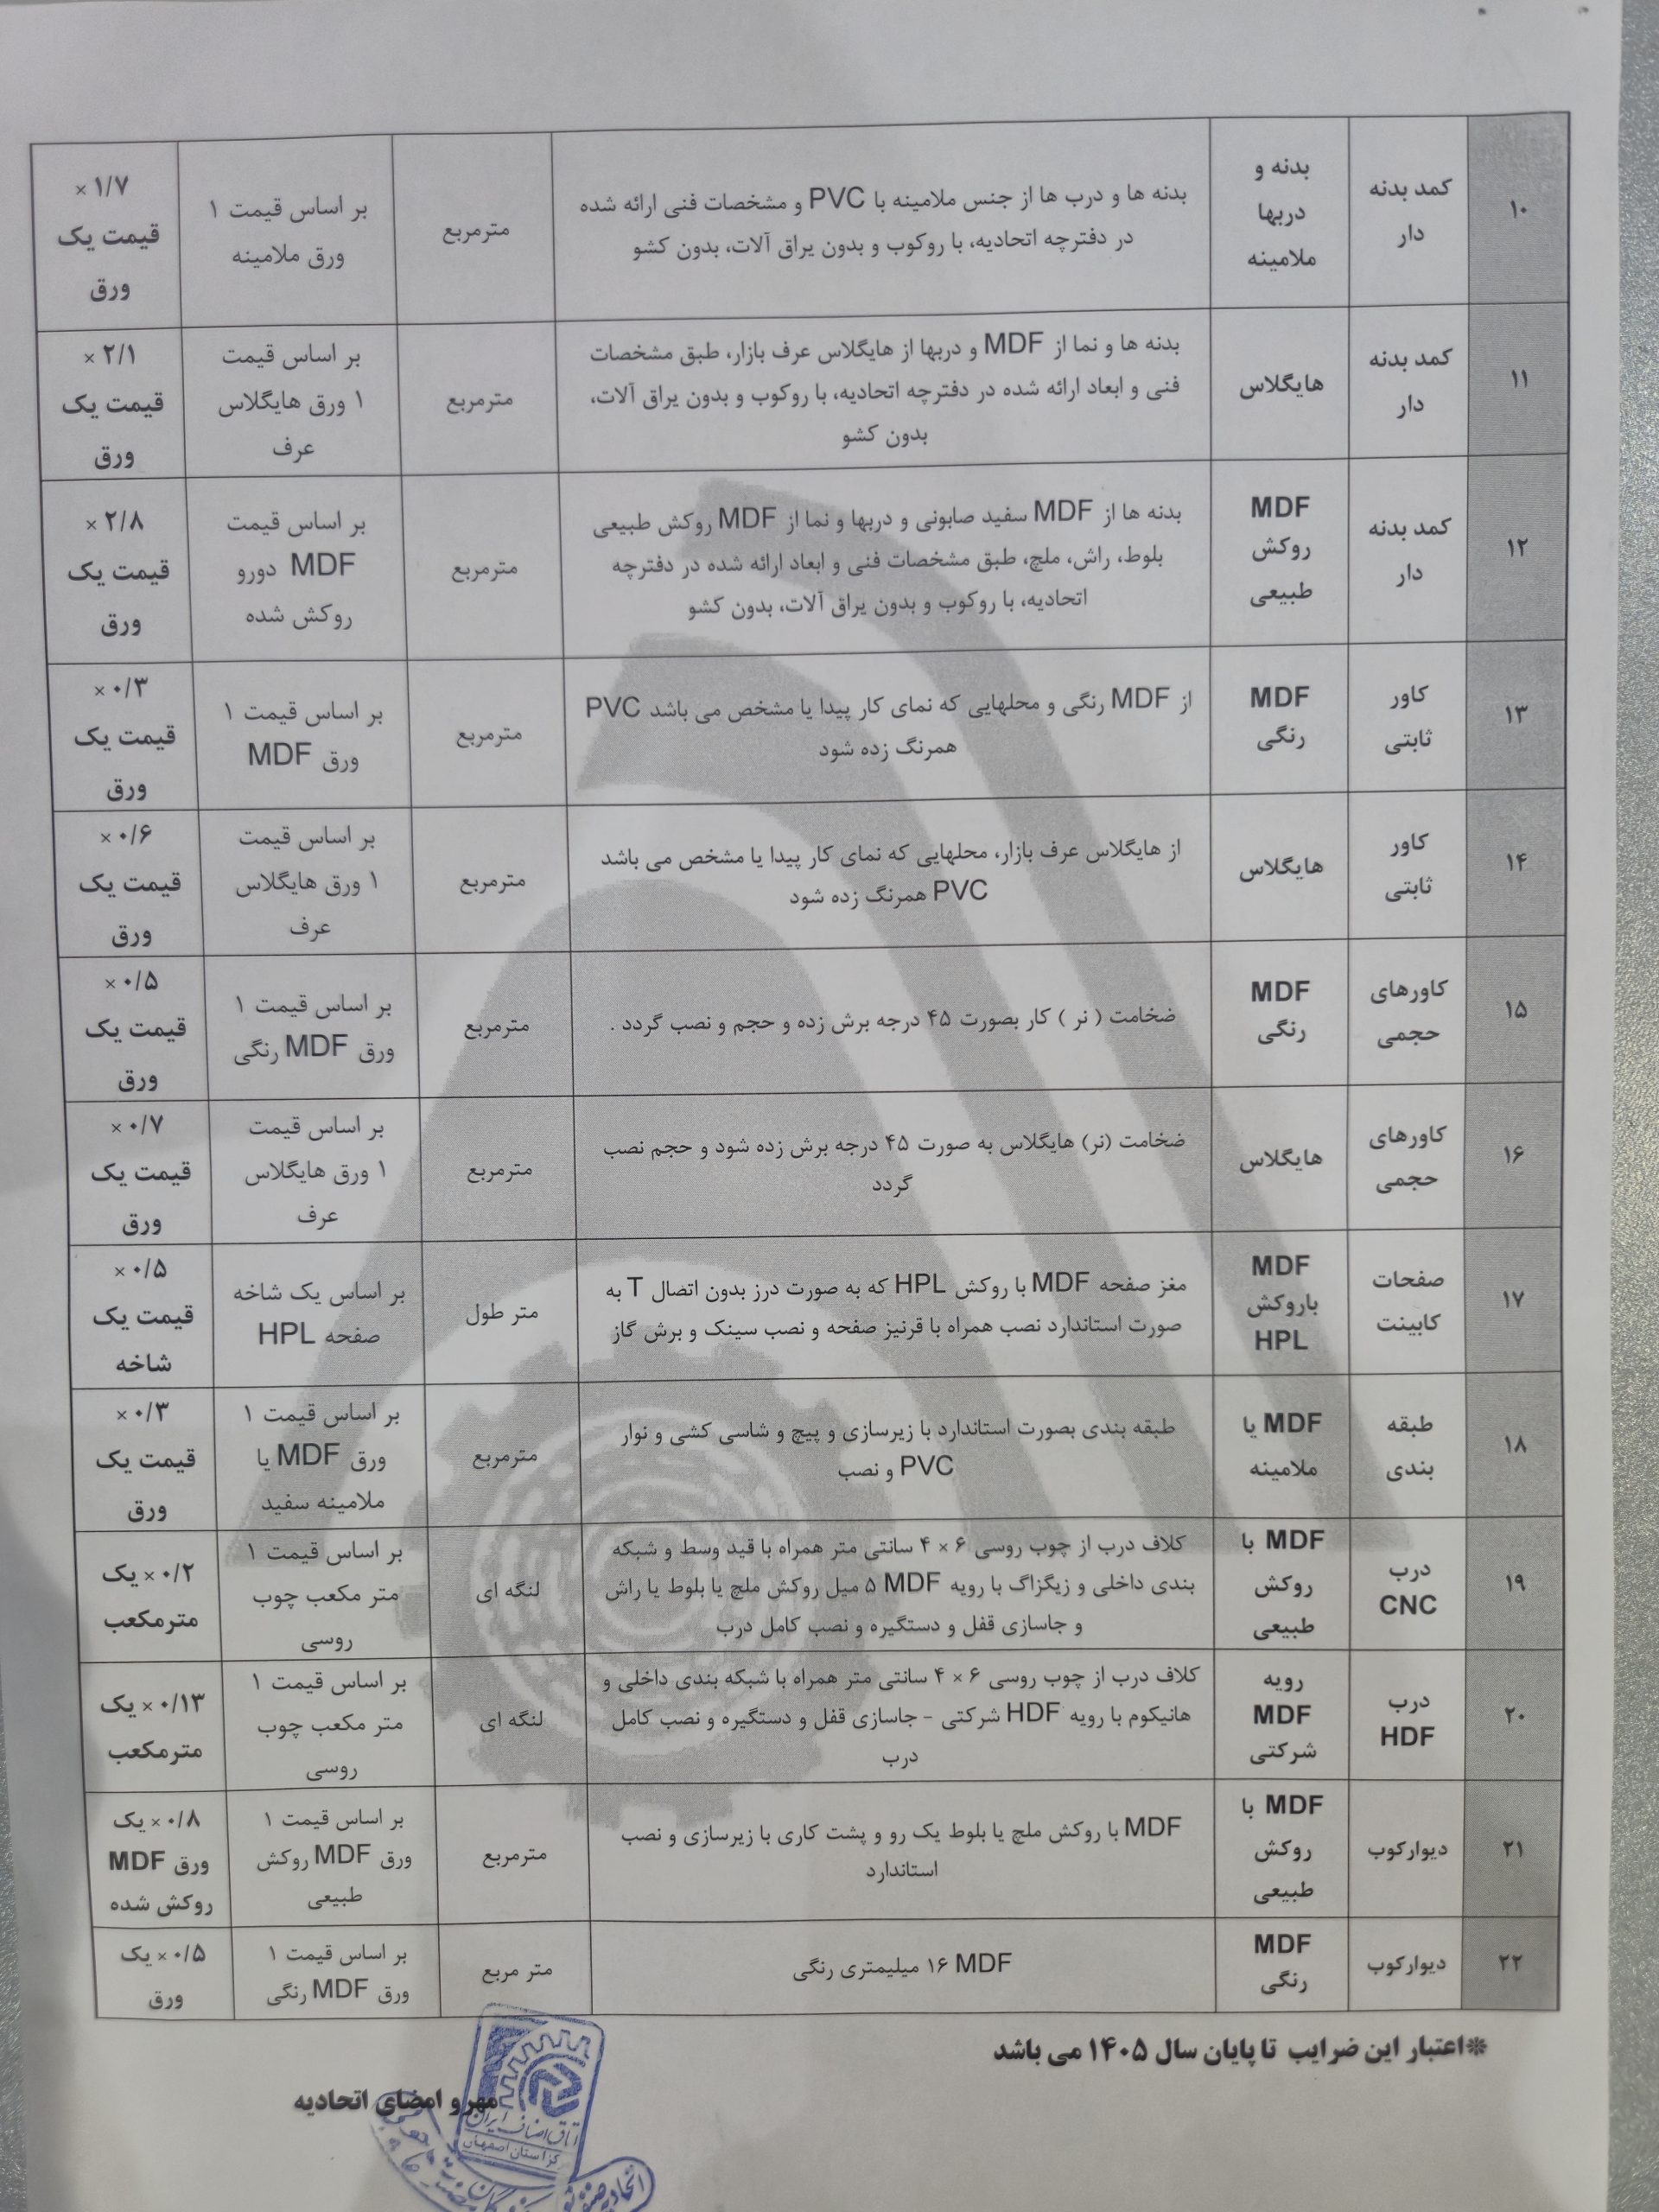 ۱۰
کمد بدنه
دار
بدنه و
دربها
ملامینه
بدنه ها و درب ها از جنس ملامینه با PVC و مشخصات فنی ارائه شده
در دفترچه اتحادیه، با روکوب و بدون یراق آلات، بدون کشو
مترمربع
بر اساس قیمت ۱
ورق ملامینه
۱/۷ ×
قیمت یک
ورق
۱۱
کمد بدنه
دار
هایگلاس
بدنه ها و نما از MDF و دربها از هایگلاس عرف بازار، طبق مشخصات
فنی و ابعاد ارائه شده در دفترچه اتحادیه، با روکوب و بدون یراق آلات،
بدون کشو
مترمربع
بر اساس قیمت
۱ ورق هایگلاس
عرف
۲/۱ ×
قیمت یک
ورق
۱۲
کمد بدنه
دار
MDF
روکش
طبیعی
بدنه ها از MDF سفید صابونی و دربها و نما از MDF روکش طبیعی
بلوط، راش، ملچ، طبق مشخصات فنی و ابعاد ارائه شده در دفترچه
اتحادیه، با روکوب و بدون یراق آلات، بدون کشو
مترمربع
بر اساس قیمت
MDF دورو
روکش شده
۲/۸ ×
قیمت یک
ورق
۱۳
کاور
ثابتی
MDF
رنگی
از MDF رنگی و محلهایی که نمای کار پیدا یا مشخص می باشد PVC
همرنگ زده شود
مترمربع
بر اساس قیمت ۱
ورق MDF
۰/۳ ×
قیمت یک
ورق
۱۴
کاور
ثابتی
هایگلاس
از هایگلاس عرف بازار، محلهایی که نمای کار پیدا یا مشخص می باشد
PVC همرنگ زده شود
مترمربع
بر اساس قیمت
۱ ورق هایگلاس
عرف
۰/۶ ×
قیمت یک
ورق
۱۵
کاورهای
حجمی
MDF
رنگی
ضخامت ( نر ) کار بصورت ۴۵ درجه برش زده و حجم و نصب گردد .
مترمربع
بر اساس قیمت ۱
ورق MDF رنگی
۰/۵ ×
قیمت یک
ورق
۱۶
کاورهای
حجمی
هایگلاس
ضخامت (نر) هایگلاس به صورت ۴۵ درجه برش زده شود و حجم نصب
گردد
مترمربع
بر اساس قیمت
۱ ورق هایگلاس
عرف
۰/۷ ×
قیمت یک
ورق
۱۷
صفحات
کابینت
MDF
باروکش
HPL
مغز صفحه MDF با روکش HPL که به صورت درز بدون اتصال T به
صورت استاندارد نصب همراه با قرنیز صفحه و نصب سینک و برش گاز
متر طول
بر اساس یک شاخه
صفحه HPL
۰/۵ ×
قیمت یک
شاخه
۱۸
طبقه
بندی
MDF یا
ملامینه
طبقه بندی بصورت استاندارد با زیرسازی و پیچ و شاسی کشی و نوار
PVC و نصب
مترمربع
بر اساس قیمت ۱
ورق MDF یا
ملامینه سفید
۰/۳ ×
قیمت یک
ورق
۱۹
درب
CNC
MDF با
روکش
طبیعی
کلاف درب از چوب روسی ۶ × ۴ سانتی متر همراه با قید وسط و شبکه
بندی داخلی و زیگزاگ با رویه MDF ۵ میل روکش ملچ یا بلوط یا راش
و جاسازی قفل و دستگیره و نصب کامل درب
لنگه ای
بر اساس قیمت ۱
متر مکعب چوب
روسی
۰/۲ × یک
مترمکعب
۲۰
درب
HDF
رویه
MDF
شرکتی
کلاف درب از چوب روسی ۶ × ۴ سانتی متر همراه با شبکه بندی داخلی و
هانیکوم با رویه HDF شرکتی - جاسازی قفل و دستگیره و نصب کامل
درب
لنگه ای
بر اساس قیمت ۱
متر مکعب چوب
روسی
۰/۱۳ × یک
مترمکعب
۲۱
دیوارکوب
MDF با
روکش
طبیعی
MDF با روکش ملچ یا بلوط یک رو و پشت کاری با زیرسازی و نصب
استاندارد
مترمربع
بر اساس قیمت ۱
ورق MDF روکش
طبیعی
۰/۸ × یک
ورق MDF
روکش شده
۲۲
دیوارکوب
MDF
رنگی
MDF ۱۶ میلیمتری رنگی
متر مربع
بر اساس قیمت ۱
ورق MDF رنگی
۰/۵ × یک
ورق
*اعتبار این ضرایب تا پایان سال ۱۴۰۵ می باشد
مهر و امضای اتحادیه
اتاق اصناف ایران
مرکز استان اصفهان
اتحادیه